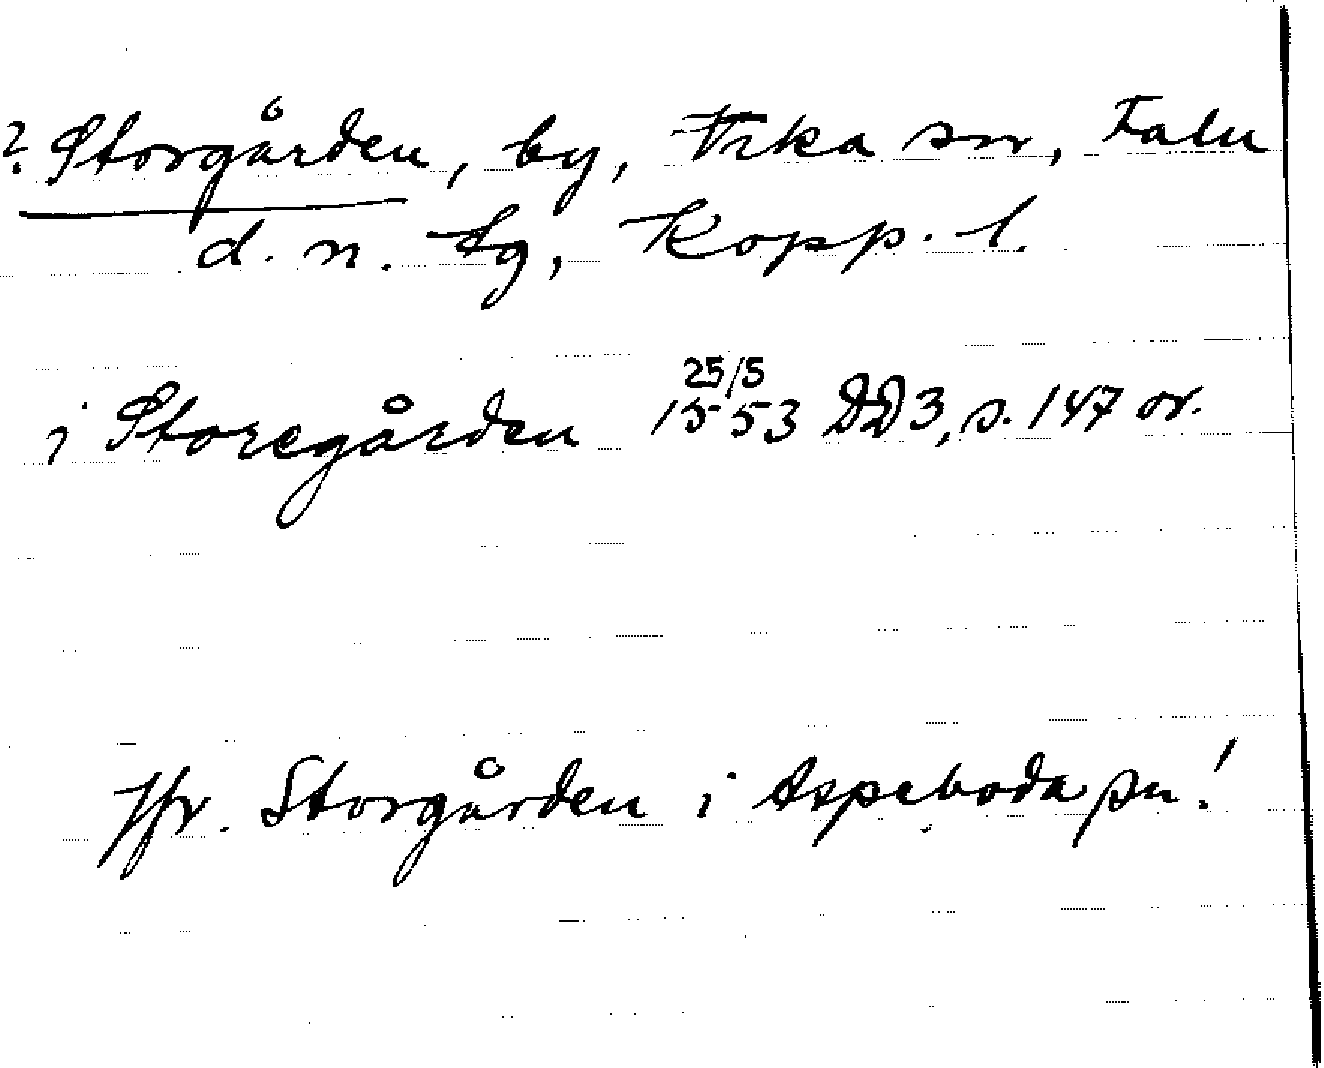 ? Storgården, by, Vika sn, Falu
d. n. tg, Kopp. l.
i Storegården 25/5 1553 DD 3, s. 147 or.
Jfr. Storgården i Aspeboda sn!